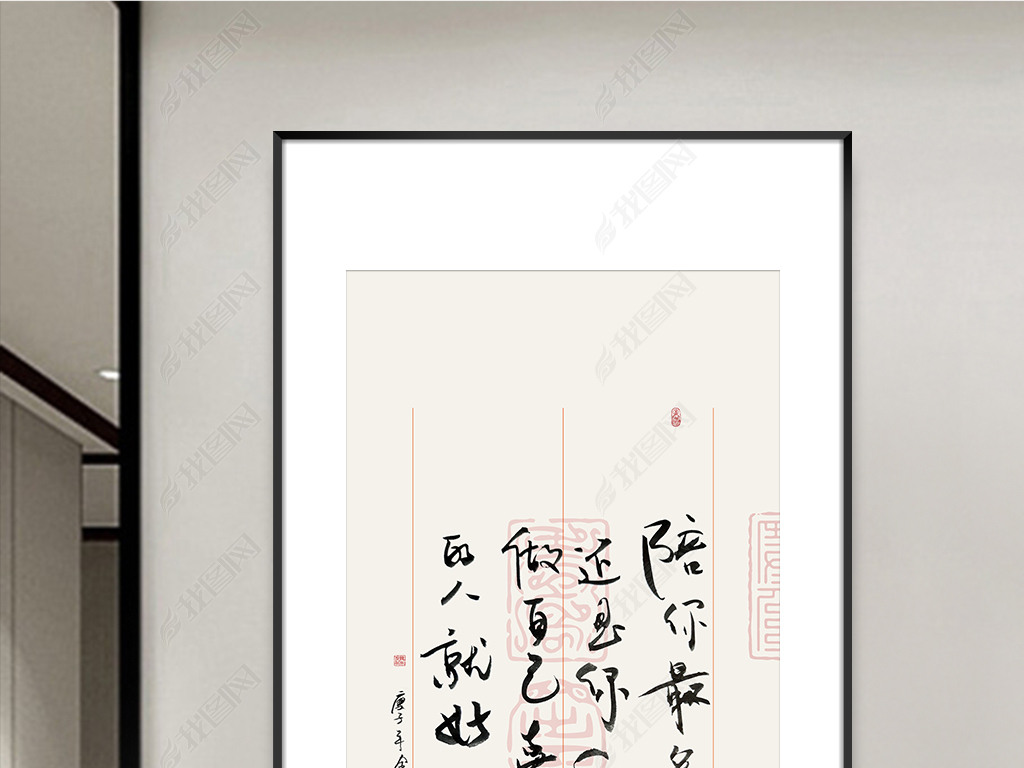 陪你最
近是你
做自己喜
的人就好
庚子年
找图网